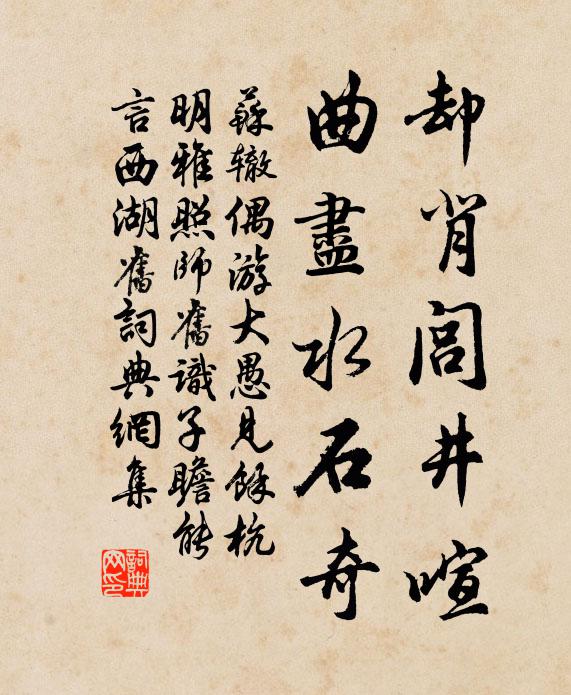 却背閭井喧
曲盡水石奇
蘇轍偶游大愚見餘杭
明雅照師舊識子瞻能
言西湖舊詞典網集
詞典网印